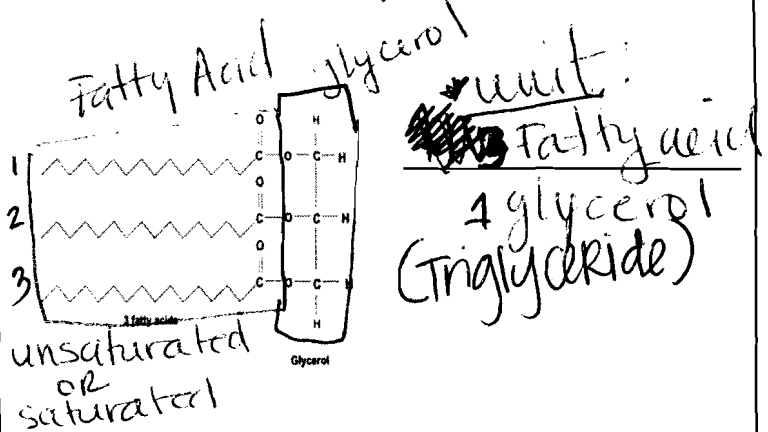 Fatty Acid
glycerol
unit:
3 Fatty acid
1 glycerol
(Triglyceride)
O
H
1
C
O
C
H
O
2
C
O
C
H
O
3
C
O
C
H
H
3 fatty acids
Glycerol
unsaturated
OR
saturated